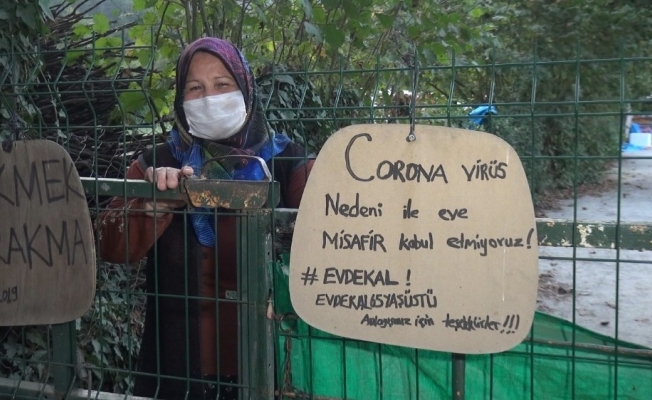 KMEK
RAKMA
2019
CORONA VİRÜS
Nedeni ile eve
MİSAFİR kabul etmiyoruz!
#EVDEKAL!
EVDEKAL65YAŞÜSTÜ
için teşekkürler!!!